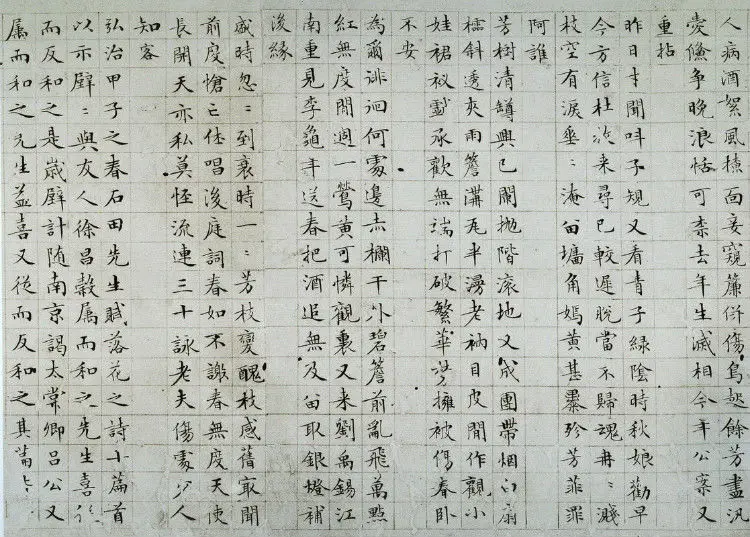 人病酒絮風撻面妾窺簾併傷鳥起餘芳盡汎
愛儉爭晚浪恬可柰去年生滅相今年公案又
重拈
昨日才聞叫子規又看青子綠陰時秋娘勸早
今方信杜牧來尋已較遲脫當不歸魂冉冉濺
枝空有淚垂垂淹留墻角嫣黃甚暴殄芳菲罪
阿誰
芳樹清罇興已闌拋階滾地又成團帶烟白扇
檽斜透夾雨簷溝瓦半漫老衲目皮閒作觀小
娃裙衩戲承歡無端打破繁華夢擁被傷春臥
不安
為爾徘徊何處邊赤欄干外碧簷前亂飛萬點
紅無度閒過一鶯黃可憐觀裏又来劉禹錫江
南重見李龜年送春把酒追無及留取銀燈補
後緣
盛時忽忽到衰時一一芳枝變醜枝感舊最聞
前度愴亡休唱後庭詞春如不謝春無度天使
長開天亦私莫怪流連三十詠老夫傷處少人
知客
弘治甲子之春石田先生賦落花之詩十篇首
以示璧璧與友人徐昌穀屬而和之先生喜從
而反和之是歲璧計隨南京謁太常卿呂公又
屬而和之先生益喜又從而反和之其篇